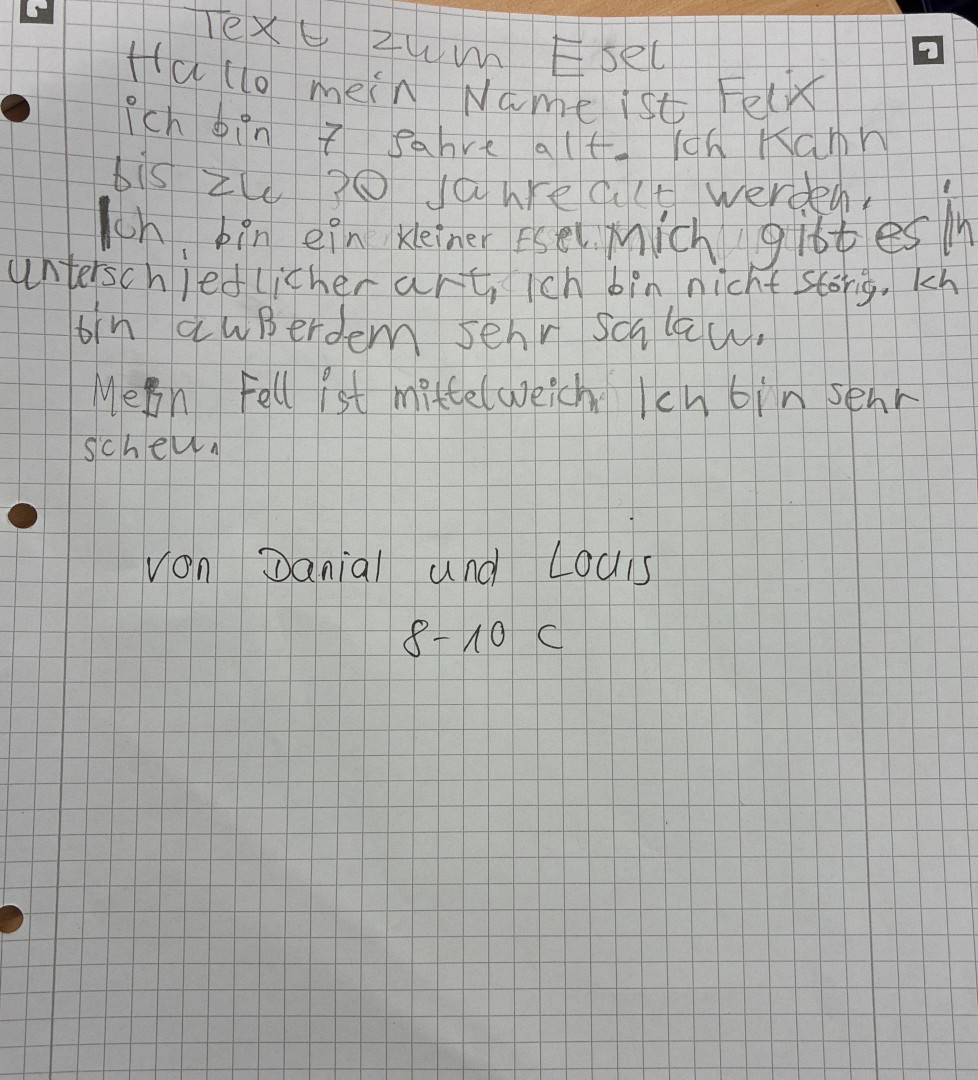 Text zum Esel
Hallo mein Name ist Felix
ich bin 7 Jahre alt. Ich kann
bis zu 30 Jahre alt werden.
Ich bin ein kleiner Esel. Mich gibt es in
unterschiedlicher art, Ich bin nicht störig. Ich
bin außerdem sehr schlau.
Mein Fell ist mittelweich. Ich bin sehr
scheu.
von Danial und Louis
8-10 C